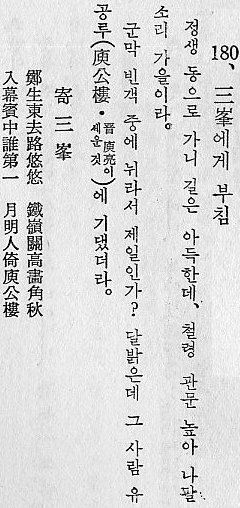 180、三峯에게 부침
정생 동으로 가니 길은 아득한데, 철령 관문 높아 나팔
소리 가을이라.
군막 빈객 중에 뉘라서 제일인가? 달밝은데 그 사람 유
공루(庾公樓·晋 庾亮이 세운 것)에 기댔더라。
寄三峯
鄭生東去路悠悠 鐵嶺關高畵角秋
入幕賓中誰第一 月明人倚庾公樓